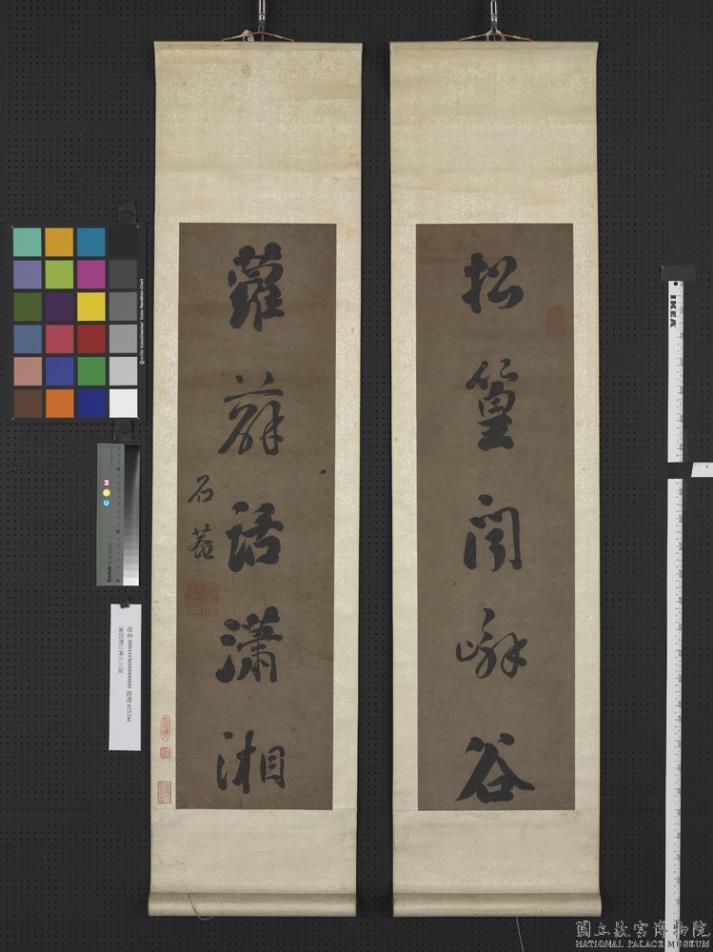 松篁聞嶰谷
蘿薜話瀟湘
石菴
IKEA
國立故宮博物院
NATIONAL PALACE MUSEUM